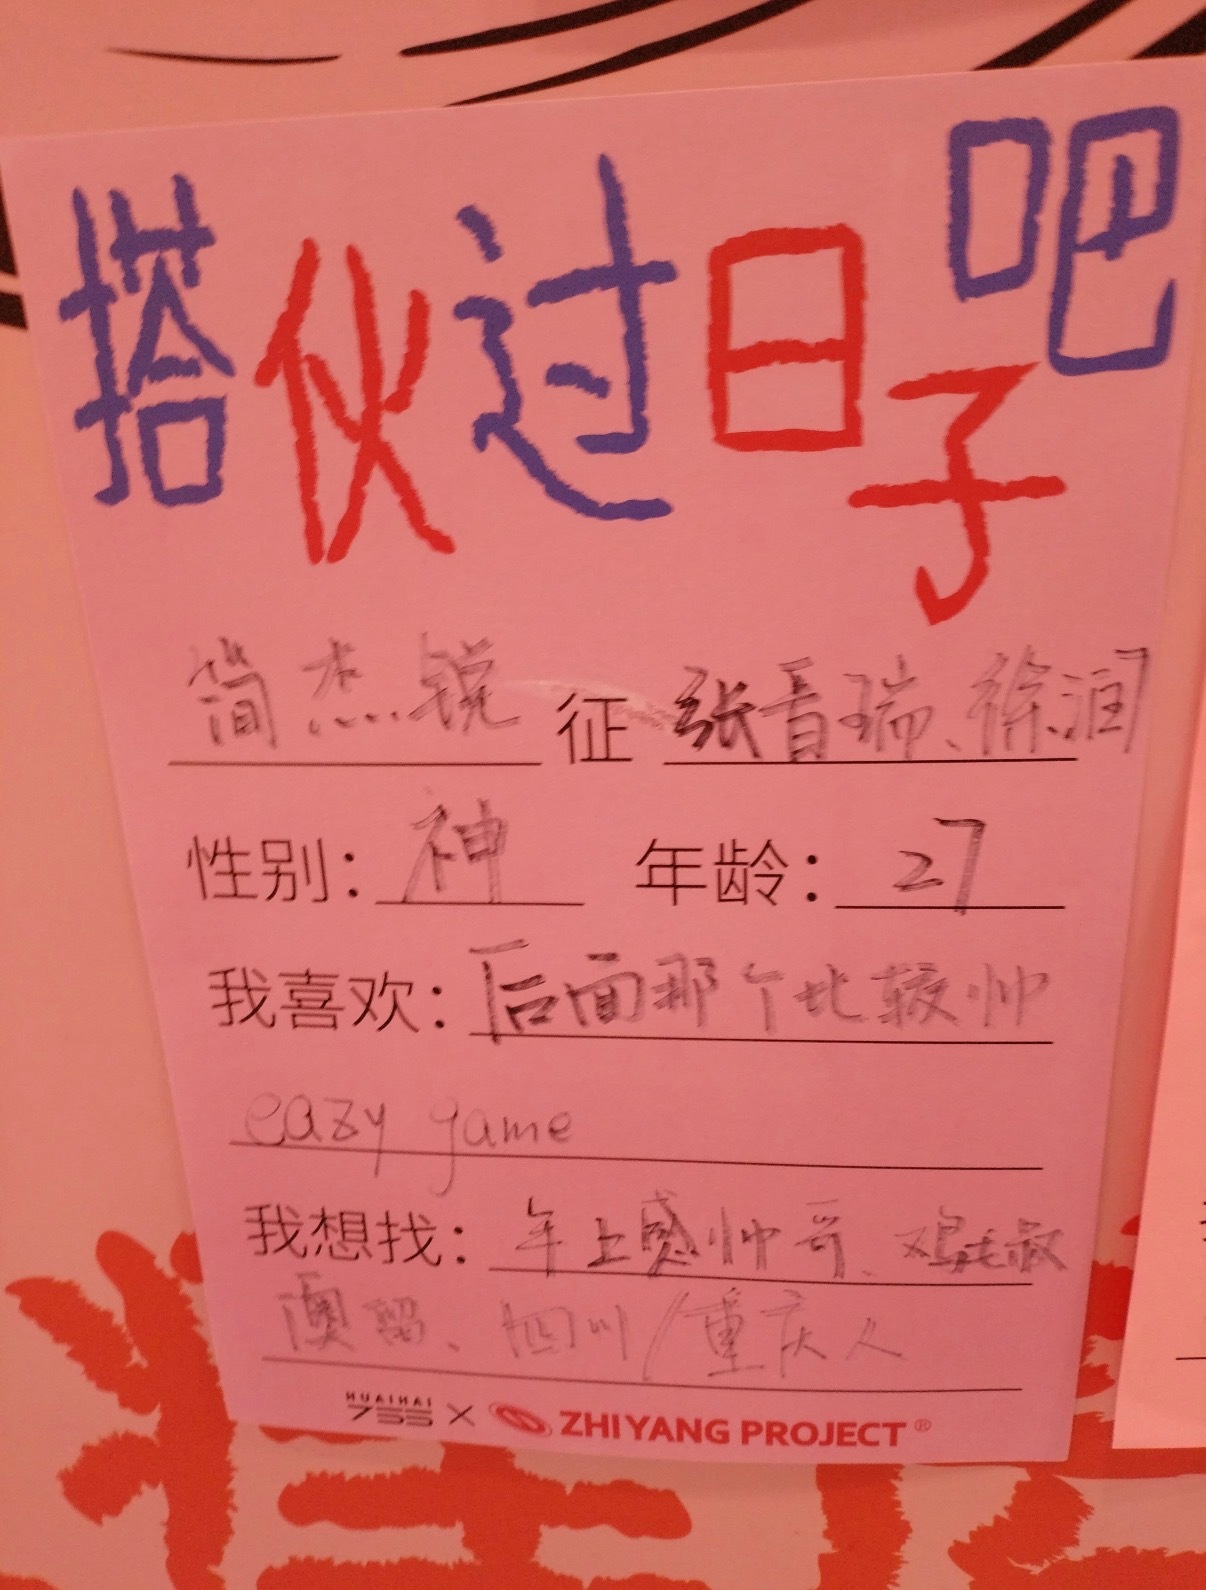 搭伙过日子吧
简杰锐 征 张晋瑞、徐润
性别：神 年龄：27
我喜欢：后面那个比较帅
eazy game
我想找：年上感帅哥、鸡毛叔
澳留、四川/重庆人
HUAIHAI 755 × ZHIYANG PROJECT®